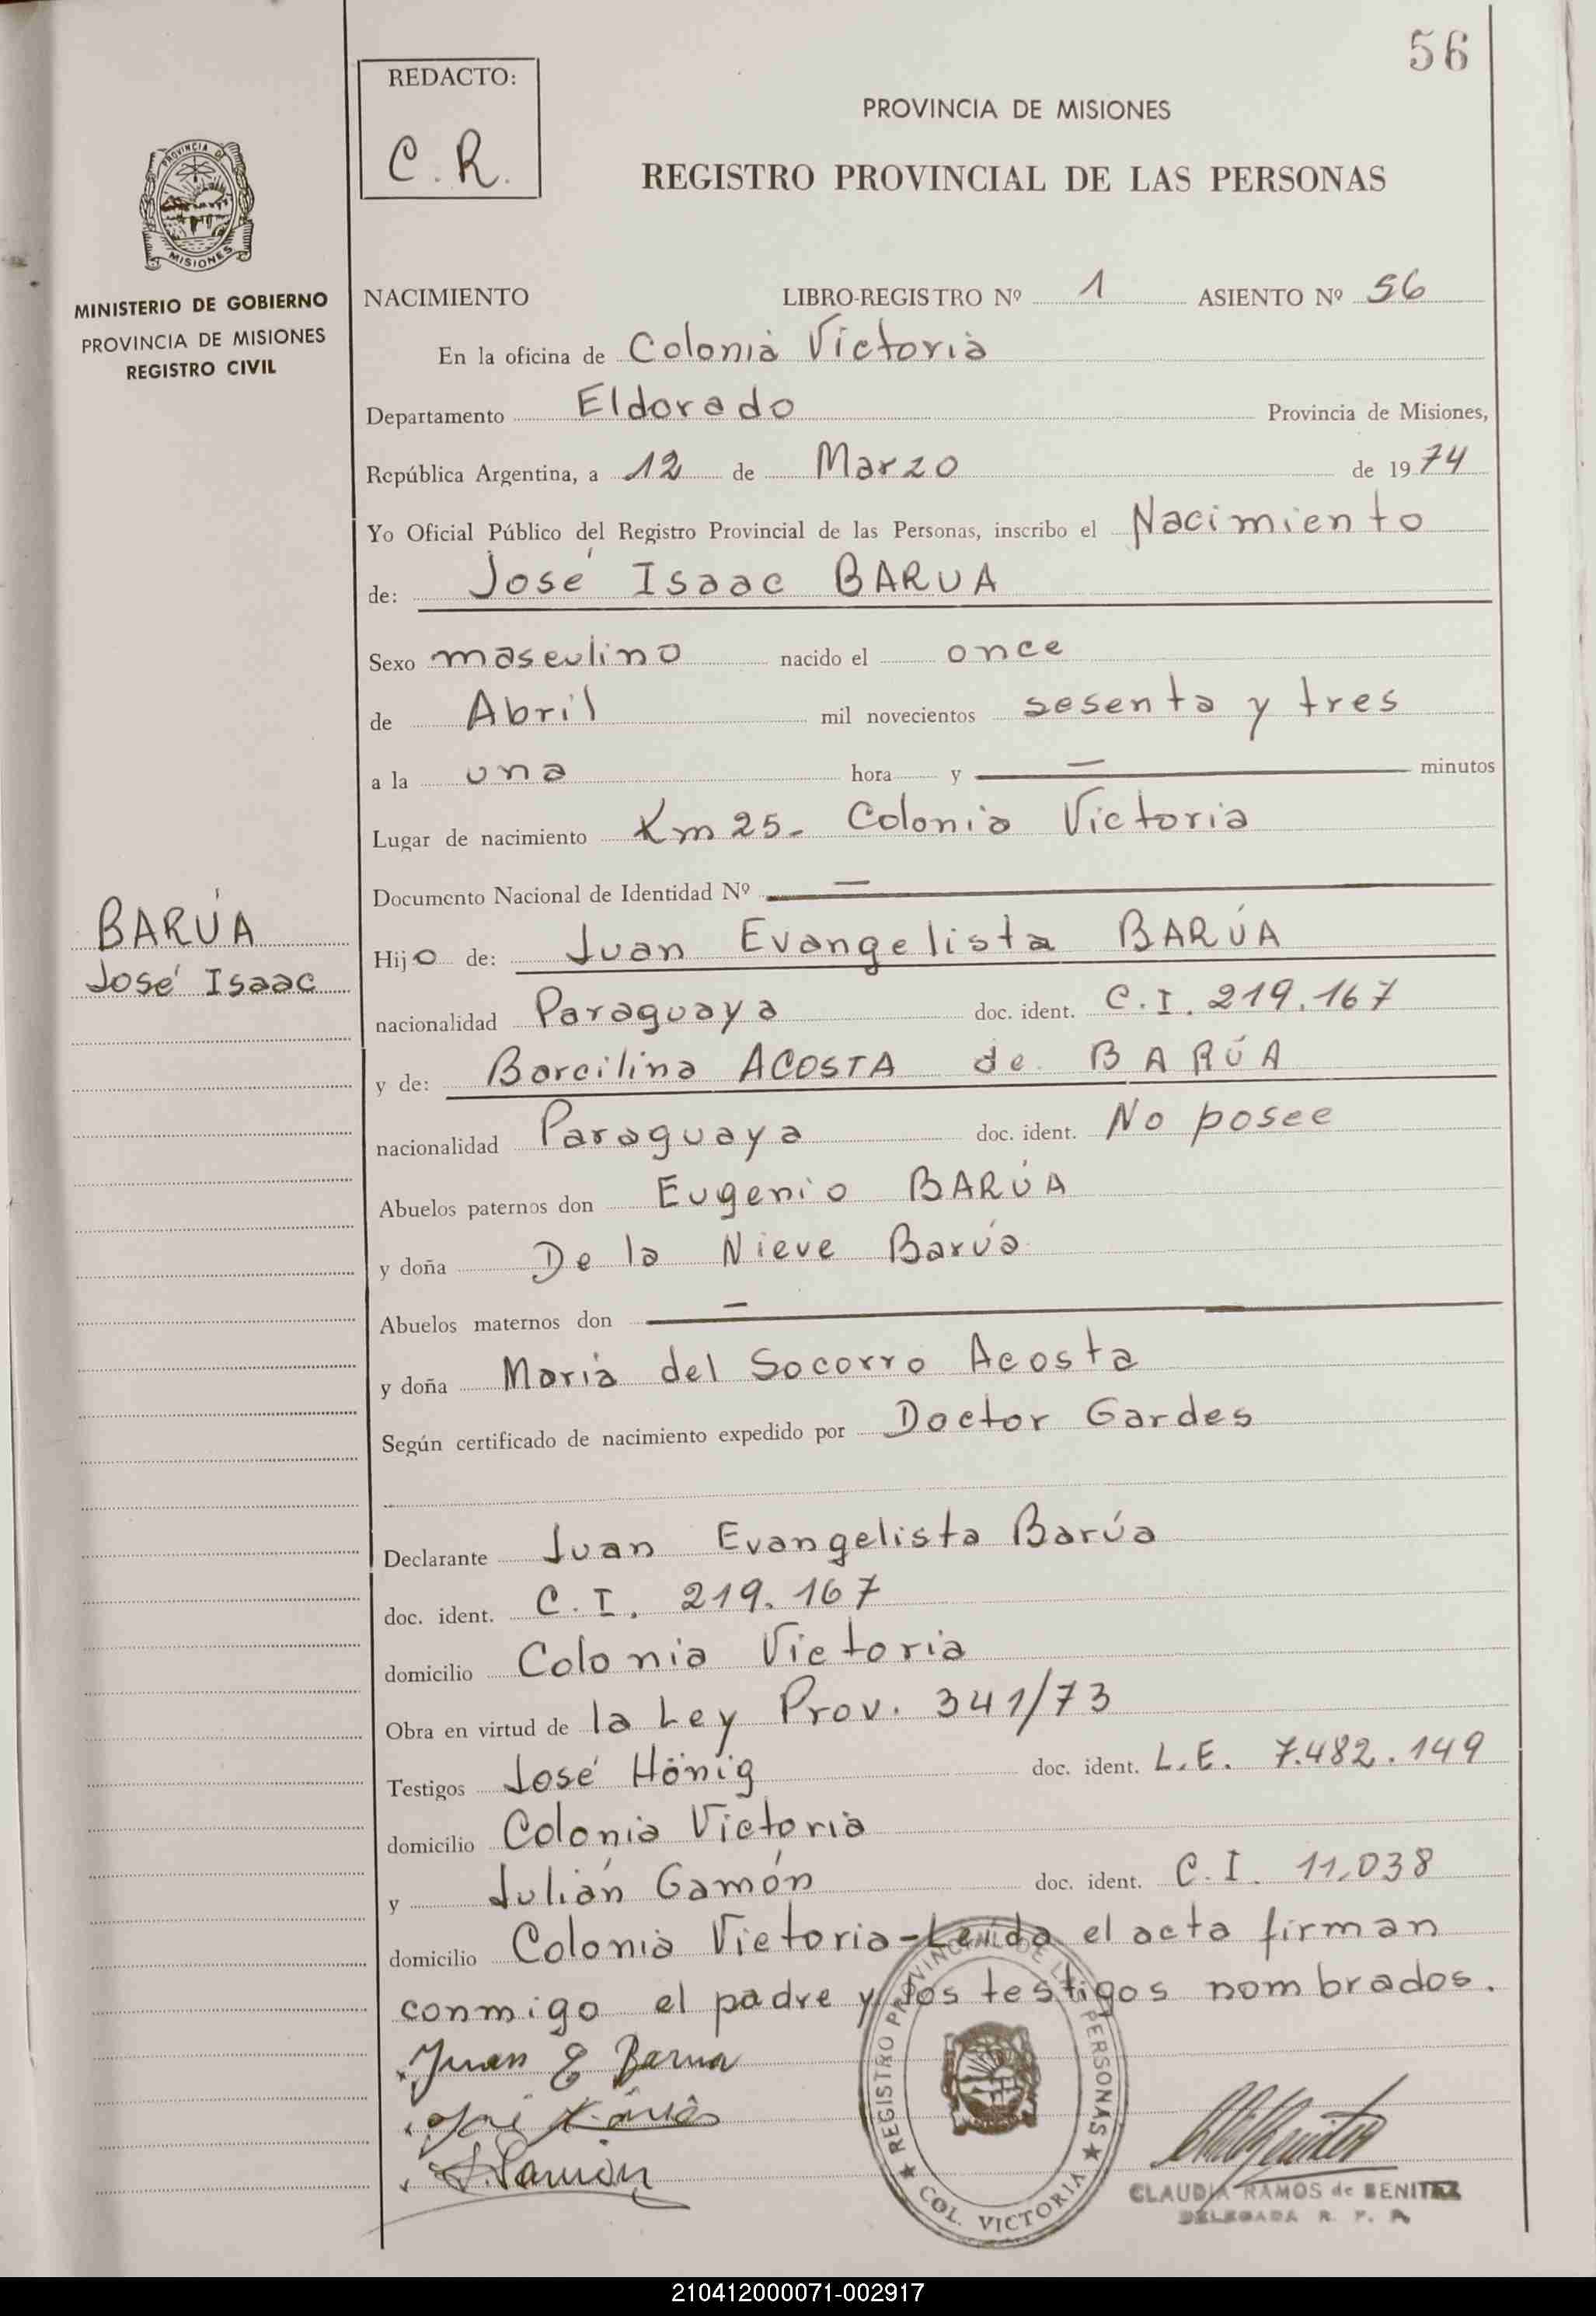 56
REDACTO:
C. R.
PROVINCIA DE MISIONES
REGISTRO PROVINCIAL DE LAS PERSONAS
PROVINCIA DE
MISIONES
MINISTERIO DE GOBIERNO
PROVINCIA DE MISIONES
REGISTRO CIVIL
NACIMIENTO LIBRO-REGISTRO Nº 1 ASIENTO Nº 56
En la oficina de Colonia Victoria
Departamento Eldorado Provincia de Misiones,
República Argentina, a 12 de Marzo de 1974
Yo Oficial Público del Registro Provincial de las Personas, inscribo el Nacimiento
de: José Isaac BARUA
Sexo masculino nacido el once
de Abril mil novecientos sesenta y tres
a la una hora y — minutos
Lugar de nacimiento Km 25- Colonia Victoria
Documento Nacional de Identidad Nº —
BARÚA
José Isaac
Hijo de: Juan Evangelista BARÚA
nacionalidad Paraguaya doc. ident. C.I. 219.167
y de: Barcilina ACOSTA de BARÚA
nacionalidad Paraguaya doc. ident. No posee
Abuelos paternos don Eugenio BARÚA
y doña De la Nieve Barúa
Abuelos maternos don —
y doña María del Socorro Acosta
Según certificado de nacimiento expedido por Doctor Gardes
Declarante Juan Evangelista Barúa
doc. ident. C.I. 219.167
domicilio Colonia Victoria
Obra en virtud de la Ley Prov. 341/73
Testigos José Hönig doc. ident. L.E. 7.482.149
domicilio Colonia Victoria
y Julián Gamón doc. ident. C.I. 11.038
domicilio Colonia Victoria-Leída el acta firman
conmigo el padre y los testigos nombrados.
Juan E Barua
REGISTRO PROVINCIAL DE LAS PERSONAS
COL. VICTORIA
CLAUDIA RAMOS de BENITEZ
DELEGADA R. P. P.
210412000071-002917